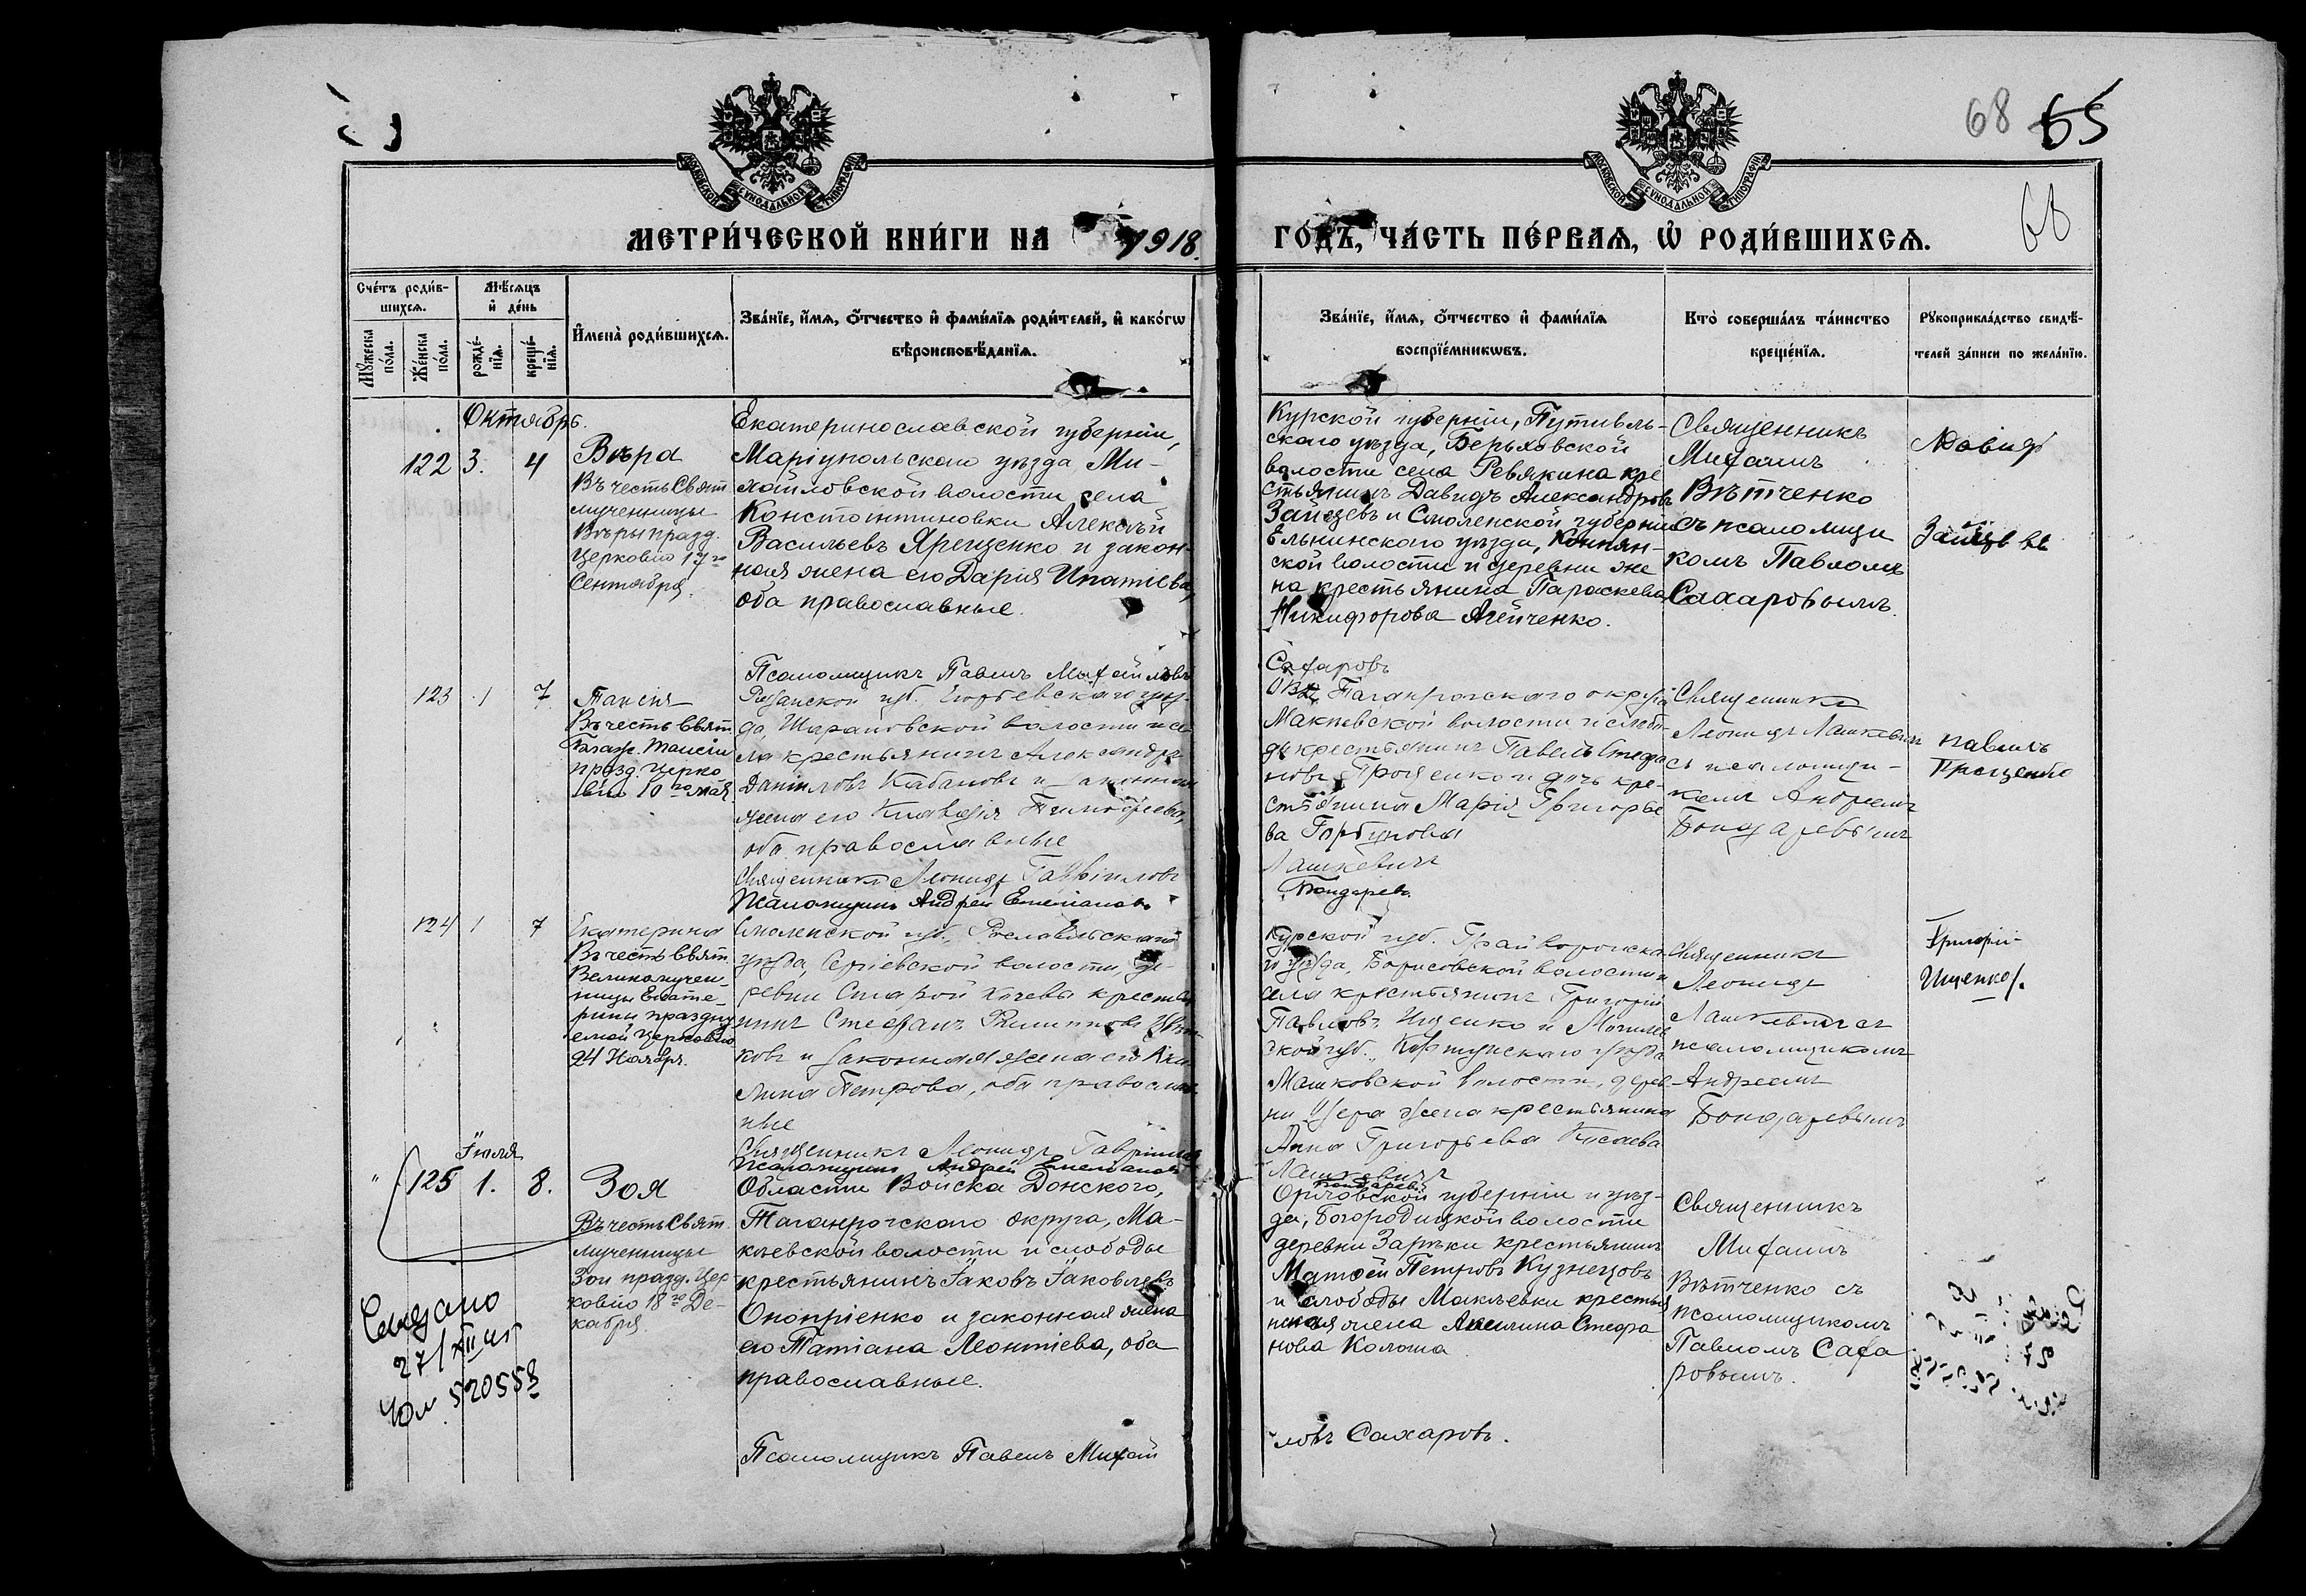 68 65
68
МОСКОВСКОЙ СѴНОДАЛЬНОЙ ТИПОГРАФІИ
МОСКОВСКОЙ СѴНОДАЛЬНОЙ ТИПОГРАФІИ
МЕТРИ́ЧЕСКОЙ КНИ́ГИ НА 1918.
ГО́ДЪ, ЧА́СТЬ ПЕ́РВАЯ, Ѡ РОДИ́ВШИХСЯ.
Сче́тъ роди́в-
шихся.
Мѣ́сяцъ
и де́нь
Мꙋ́жеска
по́ла.
Же́нска
по́ла.
рожде́-
нїя.
креще́-
нїя.
Имена̀ роди́вшихся.
Зва́нїе, и́мя, о́тчество и фами́лїя роди́телей, и како́гѡ
вѣроисповѣ́данїя.
Зва́нїе, и́мя, о́тчество и фами́лїя
воспрїе́мникѡвъ.
Кто̀ соверша́лъ та́инство
креще́нїя.
Рꙋкоприкла́дство свидѣ́-
телей за́писи по жела́нїю.
Октябрь.
122 3. 4
Вѣра
Въ честь Свят.
мученницы
Вѣры празд.
Церковію 17го
Сентября.
Екатеринославской губерніи,
Маріупольскаго уѣзда Ми-
хайловской волости, села
Константиновки Алексѣй
Васильевъ Ярещенко и закон-
ная жена его Дарія Ипатіева,
оба православные.
Псаломщикъ Павелъ Михайловъ
Курской губерніи, Путивль-
скаго уѣзда, Берюховской
волости села Ревякина кре
стьянинъ Давидъ Александровъ
Зайцевъ и Смоленской губерніи
Ельнинскаго уѣзда,
ской волости и деревни же
на крестьянина Параскева
Никифорова Агейченко.
Сахаровъ
Священникъ
Михаилъ
Вѣтченко
съ псаломщи
комъ Павломъ
Сахаровымъ.
Давидъ
Зайцевъ
123 1 7
Таисія
Въ честь Свят.
Таисіи
празд. Церко
вію 10го мая
Рязанской губ. Егорьевскаго уѣз-
да, волости и се
ла крестьянинъ Александръ
Даніиловъ Кабановъ и законная
жена его Клавдія Тимофеева,
оба православные
Священникъ Леонидъ Гавріиловъ
Псаломщикъ Андрей Емеліановъ
ОВД Таганрогскаго округа
Макѣевской волости и слобо-
ды крестьянинъ Павелъ Стефа
новъ Проценко и дочь кре-
стьянина Марія Григорье
ва Горбунова
Лашкевичъ
Бондаревъ
Священникъ
Леонидъ Лашкевичъ
съ псаломщи-
комъ Андреемъ
Бондаревымъ
Павелъ
Проценко
124 1 7
Екатерина
Въ честь Свят.
Великомучен-
ницы Екате-
рины праздну
емой Церковію
24 Ноября.
Смоленской губ., Рославльскаго
уѣзда, Сергіевской волости, де-
ревни Старой крестья
нинъ Стефанъ Филипповъ
ковъ и законная жена его Аки
лина Петрова, оба православ
ные
Священникъ Леонидъ Гавріиловъ
Псаломщикъ Андрей Емеліановъ
Курской губ. Грайворонска
го уѣзда, Борисовской волости и
села крестьянинъ Григорій
Павловъ Ищенко и Могилев
ской губ., уѣзда
Машковской волости, дерев-
ни жена крестьянина
Анна Григорьева Кисаева
Лашкевичъ
Бондаревъ
Священникъ
Леонидъ
Лашкевичъ съ
псаломщикомъ
Андреемъ
Бондаревымъ
Григорій
Ищенко
Іюля
125 1. 8.
Зоя
Въ честь Свят.
мученницы
Зои празд. Цер-
ковію 18го Де-
кабря.
Области Войска Донского,
Таганрогскаго округа, Ма-
кѣевской волости и слободы
крестьянинъ Іаковъ Іаковлевъ
Онопріенко и законная жена
его Татіана Леонтіева, оба
православные.
Псаломщикъ Павелъ Михай
Орловской губерніи и уѣз-
да, Богородицкой волости
деревни Зарѣки крестьянинъ
Матѳей Петровъ Кузнецовъ
и слободы Макѣевки крестья
нская жена Акилина Стефа
нова Колоша
ловъ Сахаровъ.
Священникъ
Михаилъ
Вѣтченко съ
псаломщикомъ
Павломъ Саха
ровымъ.
27/XII
520558